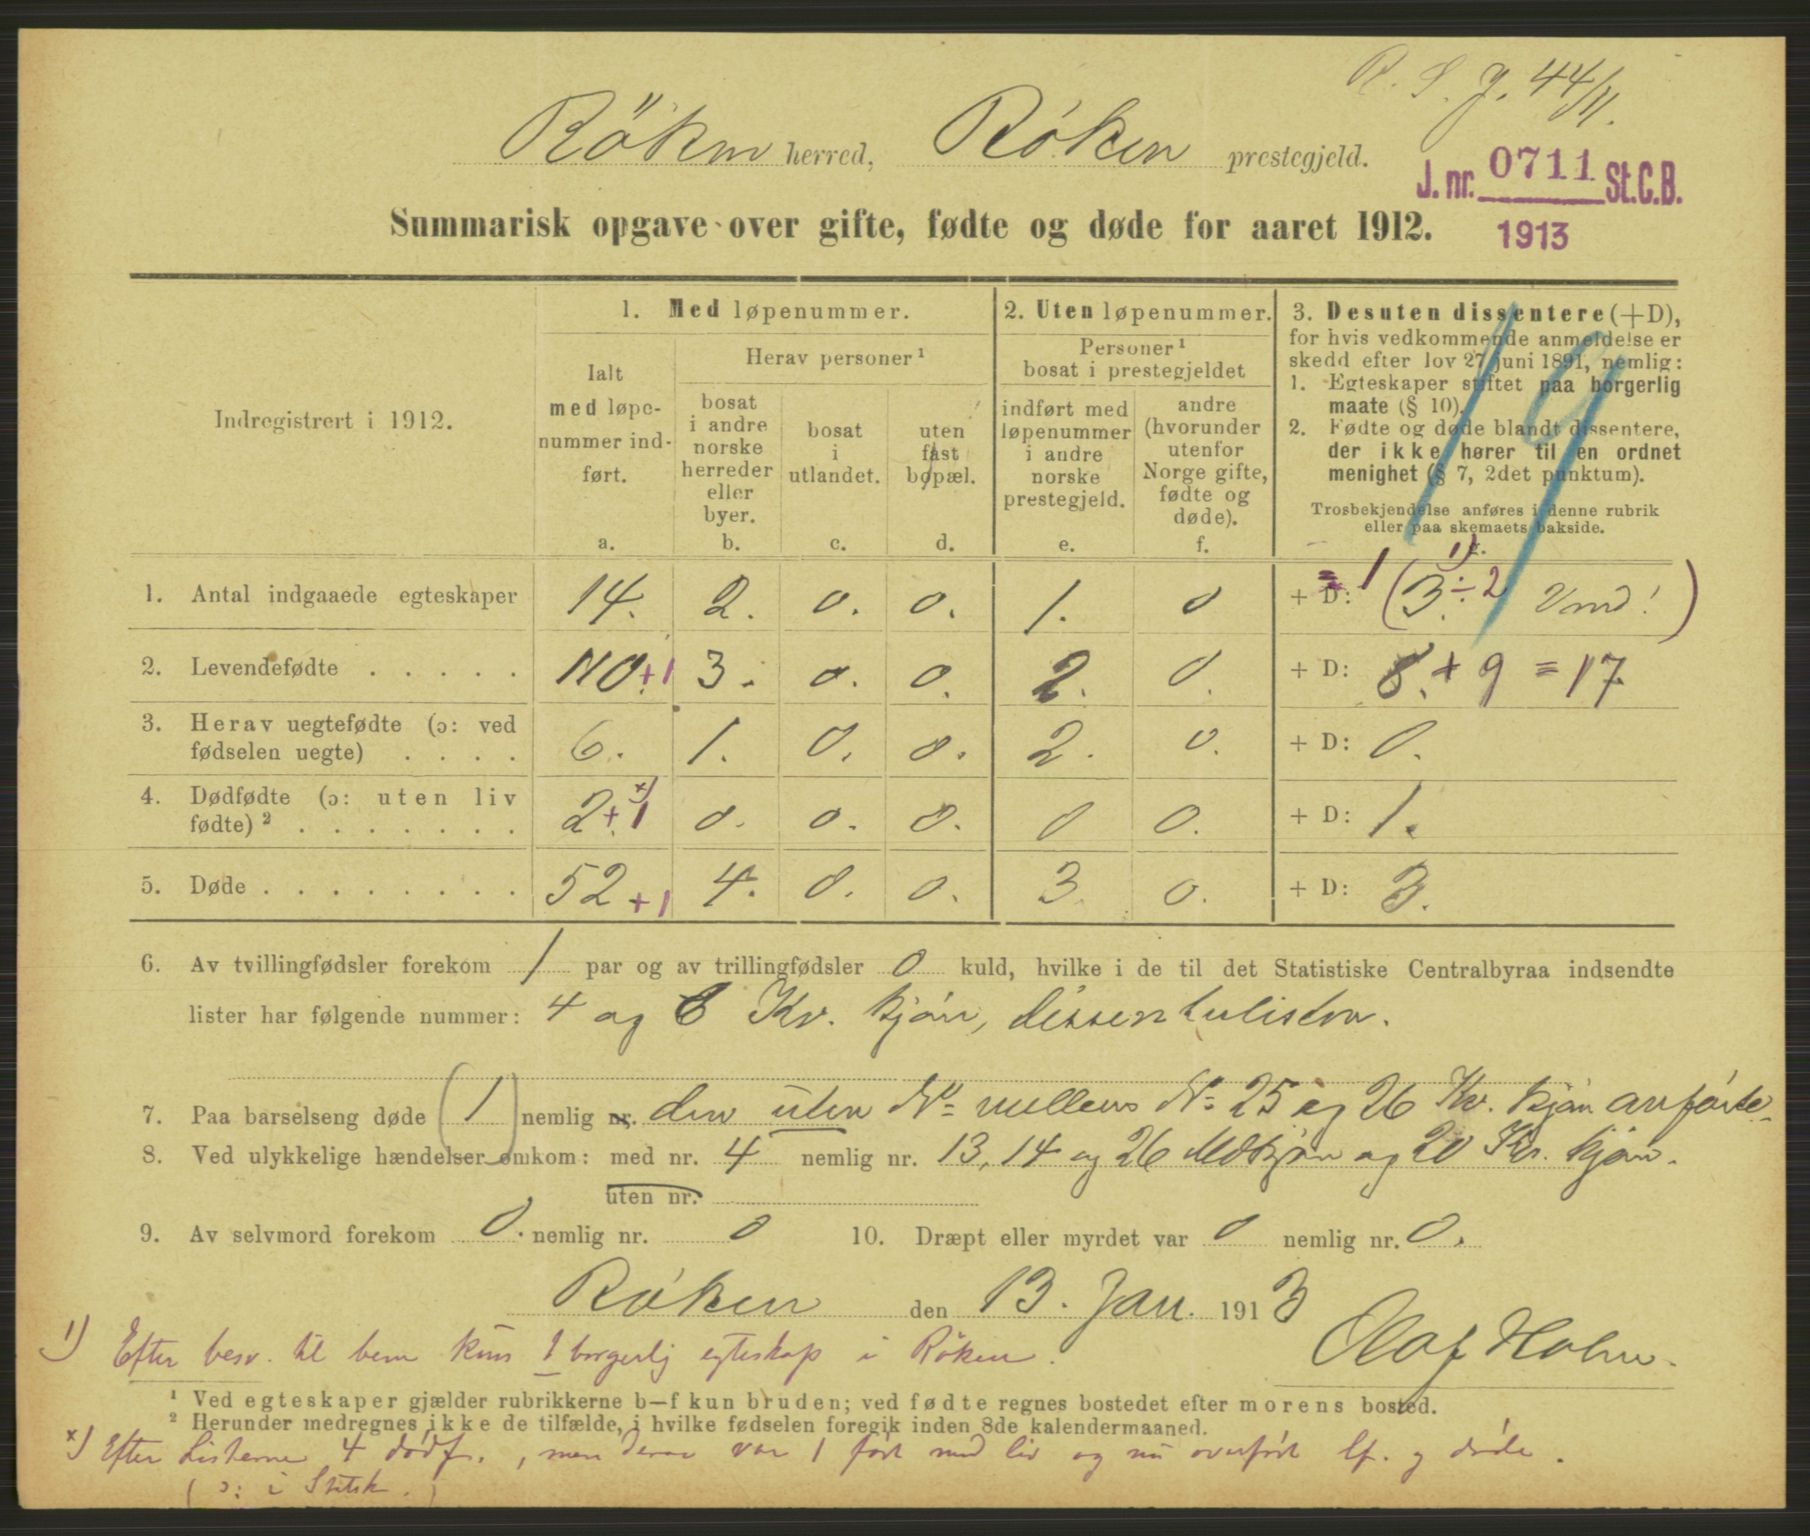 R. S. J. 44/11.
Röken herred, Røken prestegjeld.
J. nr. 0711 St.C.B.
1913
Summarisk opgave over gifte, fødte og døde for aaret 1912.
Indregistrert i 1912.
1. Med løpenummer.
Ialt med løpe-nummer ind-ført.
a.
Herav personer¹
bosat i andre norske herreder eller byer.
b.
bosat i utlandet.
c.
uten fast bopæl.
d.
2. Uten løpenummer.
Personer¹ bosat i prestegjeldet
indført med løpenummer i andre norske prestegjeld.
e.
andre (hvorunder utenfor Norge gifte, fødte og døde).
f.
3. Desuten dissentere (+D),
for hvis vedkommende anmeldelse er
skedd efter lov 27 juni 1891, nemlig:
1. Egteskaper stiftet paa borgerlig
maate (§ 10).
2. Fødte og døde blandt dissentere,
der ikke hører til en ordnet
menighet (§ 7, 2det punktum).
Trosbekjendelse anføres i denne rubrik
eller paa skemaets bakside.
g.
19
1. Antal indgaaede egteskaper 14. 2. 0. 0. 1. 0 + D: = 1 (3. ÷ 2 ¹) Vmd! )
2. Levendefødte . . . . . 110.+1 3. 0. 0. 2. 0. + D: 8. + 9 = 17.
3. Herav uegtefødte (ɔ: ved
fødselen uegte) . . . . 6. 1. 0. 0. 2. 0. + D: 0.
4. Dødfødte (ɔ: uten liv
fødte)² . . . . . . . 2.+1 ˣ) 0. 0. 0. 0 0. + D: 1.
5. Døde . . . . . . . . 52+1 4. 0. 0. 3. 0. + D: 3.
6. Av tvillingfødsler forekom 1 par og av trillingfødsler 0 kuld, hvilke i de til det Statistiske Centralbyraa indsendte
lister har følgende nummer: 4 og 6 Kv. kjøn, dissenterlisten.
7. Paa barselseng døde (1) nemlig nr. den uten No mellem No 25 og 26 Kv. kjøn anførte
8. Ved ulykkelige hændelser omkom: med nr. 4 nemlig nr. 13, 14 og 26 Mdkjøn og 20 Kv. kjøn.
uten nr.
9. Av selvmord forekom 0. nemlig nr. 0 10. Dræpt eller myrdet var 0 nemlig nr. 0.
Røken den 13. Jan. 1913
Olaf Holm.
1) Efter besv. til bem kun 1 borgerlig egteskap i Røken.
¹ Ved egteskaper gjælder rubrikkerne b—f kun bruden; ved fødte regnes bostedet efter morens bosted.
² Herunder medregnes ikke de tilfælde, i hvilke fødselen foregik inden 8de kalendermaaned.
x) Efter Listerne 4 dødf., men derav var 1 født med liv og nu overført lf. og døde.
(ɔ: i Statsk.)